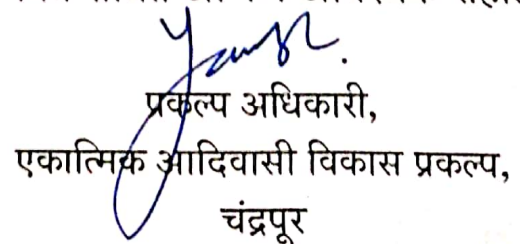 प्रकल्प अधिकारी,
एकात्मिक आदिवासी विकास प्रकल्प,
चंद्रपूर